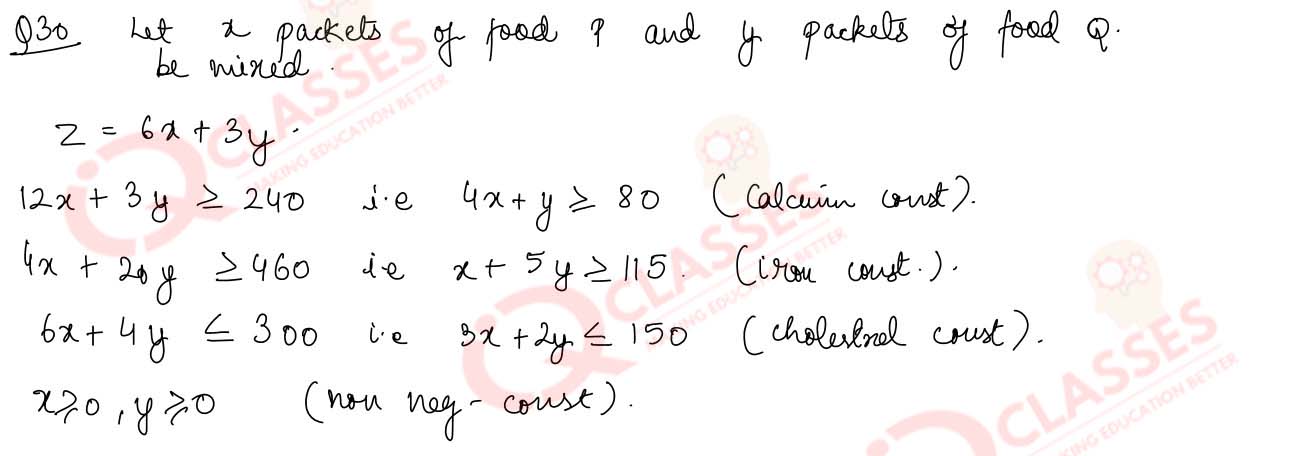 Q30 Let x packets of food P and y packets of food Q.
be mixed.
Z = 6x + 3y.
12x + 3y ≥ 240 i.e 4x + y ≥ 80 (Calcuim const).
4x + 20y ≥ 460 ie x + 5y ≥ 115. (iron const.).
6x + 4y ≤ 300 i.e 3x + 2y ≤ 150 (cholestrel const).
x ≥ 0, y ≥ 0 (non neg - const).
IQ CLASSES
MAKING EDUCATION BETTER
IQ CLASSES
MAKING EDUCATION BETTER
IQ CLASSES
MAKING EDUCATION BETTER